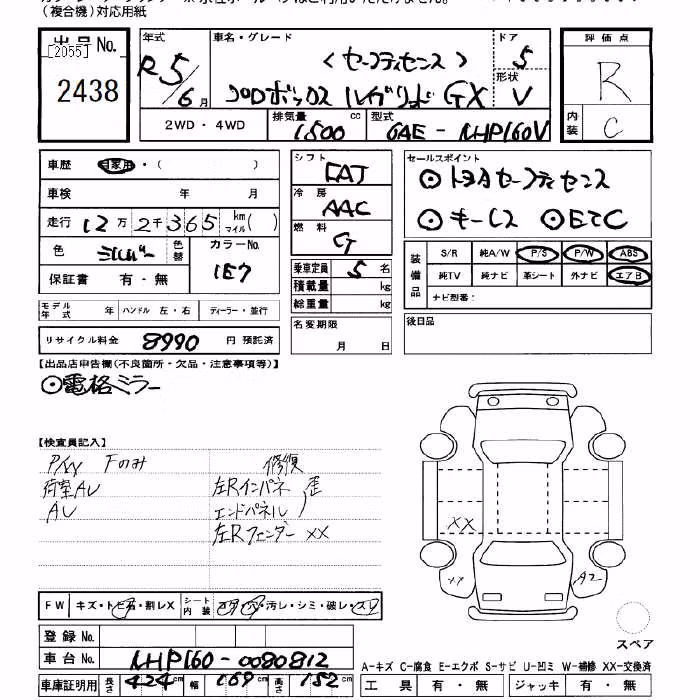 （複合機）対応用紙
出品No.
[2055]
2438
年式
R5/6月
車名・グレード
〈セーフティセンス〉
プロボックス ハイブリッド GX
ドア
5
形状
V
2WD・4WD
排気量 1500 cc
型式 6AE-NHP160V
評価点
R
内装
C
車歴 自家用・（ ）
車検 年 月
走行 12万2千365 km マイル( )
色 シルバー 色替
カラーNo.
1E7
保証書 有・無
シフト
FAT
冷房
AAC
燃料
G
乗車定員 5 名
積載量 kg
総重量 kg
名変期限
月 日
セールスポイント
⊙トヨタセーフティセンス
⊙キーレス ⊙ETC
装備品
S/R 純A/W P/S P/W ABS
純TV 純ナビ 革シート 外ナビ エアB
ナビ型番:
後日品
モデル年式 年 ハンドル 左・右 ディーラー・並行
リサイクル料金 8990 円 預託済
【出品店申告欄(不良箇所・欠品・注意事項等)】
⊙電格ミラー
【検査員記入】
P/W Fのみ
荷室AU
AU
修復
左Rインパネ 歪
エンドパネル 〃
左Rフェンダー XX
XX
XX
A2
FW キズ・トビ石・割レX
シート内装 コゲ・穴・汚レ・シミ・破レ・スリ
登録No.
車台No. NHP160-0080812
車庫証明用 長さ 424 cm 幅 169 cm 高さ 152 cm
スペア
A-キズ C-腐食 E-エクボ S-サビ U-凹ミ W-補修 XX-交換済
工具 有・無 ジャッキ 有・無